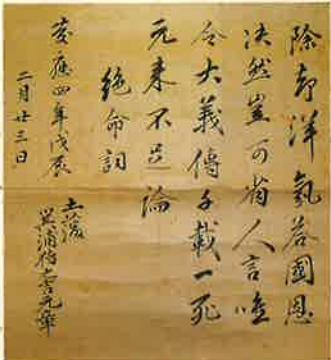 除却洋氣答國恩
決然豈可省人言唯
令大義傳千載一死
元来不足論
絶命詞
慶應四年戊辰
二月廿三日
土藩
箕浦猪之吉元章